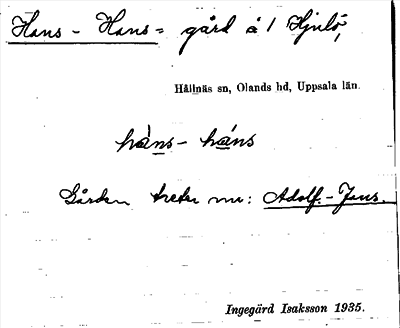 Hans - Hans = gård å 1 Hjulö,
Hållnäs sn, Olands hd, Uppsala län.
hàns - háns
Gården heter nu: Adolf - Jans.
Ingegärd Isaksson 1935.